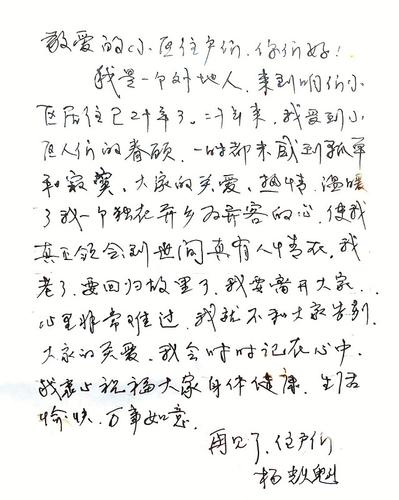 敬爱的小区住户们，你们好！
我是一个外地人，来到咱们小
区居住已二十年了。二十年来，我受到小
区人们的眷顾，一时都未感到孤单
和寂寞，大家的关爱、热情、温暖
了我一个独在异乡为异客的心，使我
真正领会到世间真有人情在。我
老了，要回归故里了，我要离开大家，
心里非常难过，我就不和大家告别，
大家的关爱，我会时时记在心中，
我衷心祝福大家身体健康、生活
愉快、万事如意。
再见了，住户们
杨
魁